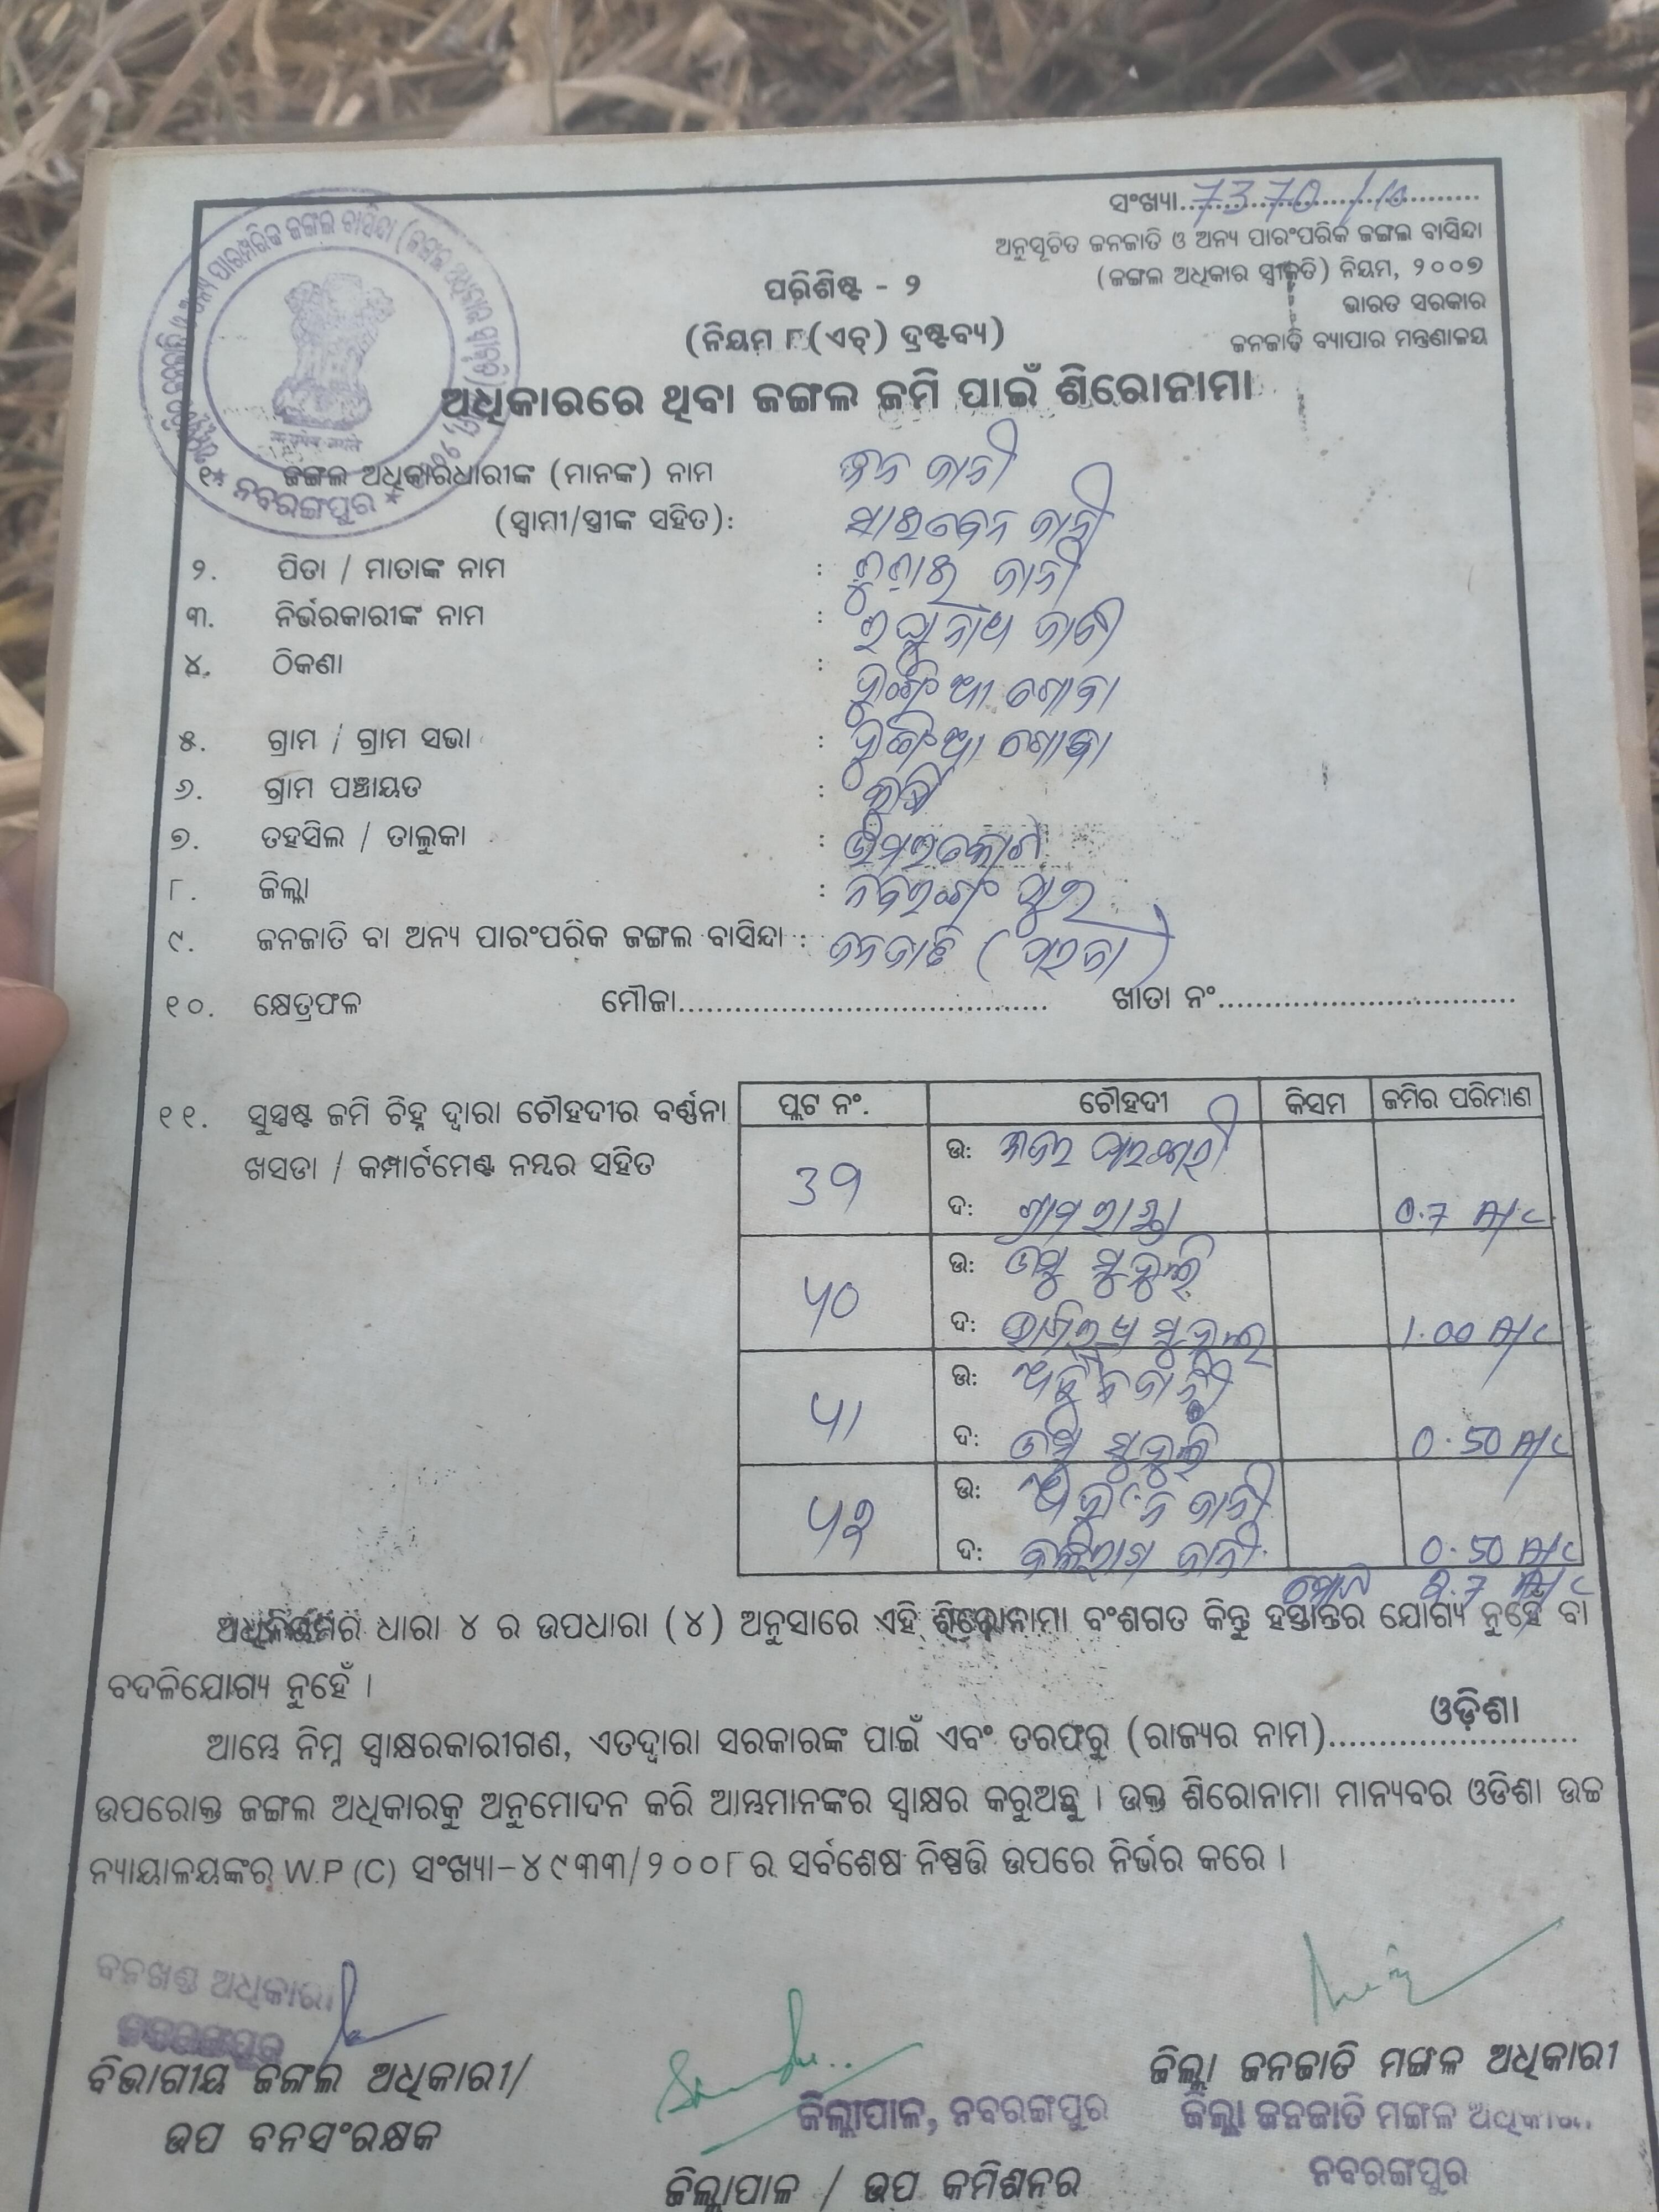 ସଂଖ୍ୟା 7370/10
ଅନୁସୂଚିତ ଜନଜାତି ଓ ଅନ୍ୟ ପାରଂପରିକ ଜଙ୍ଗଲ ବାସିନ୍ଦା
(ଜଙ୍ଗଲ ଅଧିକାର ସ୍ୱୀକୃତି) ନିୟମ, ୨୦୦୭
ଭାରତ ସରକାର
ଜନଜାତି ବ୍ୟାପାର ମନ୍ତ୍ରଣାଳୟ
ପରିଶିଷ୍ଟ - ୨
(ନିୟମ ୮ (ଏଚ୍) ଦ୍ରଷ୍ଟବ୍ୟ)
ଅଧିକାରରେ ଥିବା ଜଙ୍ଗଲ ଜମି ପାଇଁ ଶିରୋନାମା
ନବରଙ୍ଗପୁର
୧. ଜଙ୍ଗଲ ଅଧିକାରଧାରୀଙ୍କ (ମାନଙ୍କ) ନାମ ଜାନୀ
(ସ୍ୱାମୀ/ସ୍ତ୍ରୀଙ୍କ ସହିତ): ଜାନୀ
୨. ପିତା / ମାତାଙ୍କ ନାମ : ଜାନୀ
୩. ନିର୍ଭରକାରୀଙ୍କ ନାମ : ରଘୁନାଥ ଜାନୀ
୪. ଠିକଣା :
୫. ଗ୍ରାମ / ଗ୍ରାମ ସଭା :
୬. ଗ୍ରାମ ପଞ୍ଚାୟତ :
୭. ତହସିଲ / ତାଲୁକା : ଉମରକୋଟ
୮. ଜିଲ୍ଲା : ନବରଂଗପୁର
୯. ଜନଜାତି ବା ଅନ୍ୟ ପାରଂପରିକ ଜଙ୍ଗଲ ବାସିନ୍ଦା : ଜନଜାତି (ପରଜା)
୧୦. କ୍ଷେତ୍ରଫଳ ମୌଜା ଖାତା ନଂ
୧୧. ସୁସ୍ପଷ୍ଟ ଜମି ଚିହ୍ନ ଦ୍ୱାରା ଚୌହଦୀର ବର୍ଣ୍ଣନା
ଖସଡା / କମ୍ପାର୍ଟମେଣ୍ଟ ନମ୍ବର ସହିତ
ପ୍ଲଟ ନଂ. ଚୌହଦୀ କିସମ ଜମିର ପରିମାଣ
ଉ:
ଦ: ଗ୍ରାମ ରାସ୍ତା 0.7 A/C
୪୦ ଉ: ମୁଦୁଲି
ଦ: 1.00 A/C
୪୧ ଉ:
ଦ: ମୁଦୁଲି 0.50 A/C
୪୨ ଉ: ଜାନୀ
ଦ: ଜାନୀ 0.50 A/C
ମୋଟ 2.7 A/C
ଅଧିନିୟମର ଧାରା ୪ ର ଉପଧାରା (୪) ଅନୁସାରେ ଏହି ଶିରୋନାମା ବଂଶଗତ କିନ୍ତୁ ହସ୍ତାନ୍ତର ଯୋଗ୍ୟ ନୁହେଁ ବା
ବଦଳିଯୋଗ୍ୟ ନୁହେଁ ।
ଆମ୍ଭେ ନିମ୍ନ ସ୍ୱାକ୍ଷରକାରୀଗଣ, ଏତଦ୍ୱାରା ସରକାରଙ୍କ ପାଇଁ ଏବଂ ତରଫରୁ (ରାଜ୍ୟର ନାମ) ଓଡ଼ିଶା
ଉପରୋକ୍ତ ଜଙ୍ଗଲ ଅଧିକାରକୁ ଅନୁମୋଦନ କରି ଆମ୍ଭମାନଙ୍କର ସ୍ୱାକ୍ଷର କରୁଅଛୁ । ଉକ୍ତ ଶିରୋନାମା ମାନ୍ୟବର ଓଡିଶା ଉଚ୍ଚ
ନ୍ୟାୟାଳୟଙ୍କର W.P (C) ସଂଖ୍ୟା-୪୯୩୩/୨୦୦୮ର ସର୍ବଶେଷ ନିଷ୍ପତ୍ତି ଉପରେ ନିର୍ଭର କରେ ।
ବନଖଣ୍ଡ ଅଧିକାରୀ
ନବରଙ୍ଗପୁର
ବିଭାଗୀୟ ଜଙ୍ଗଲ ଅଧିକାରୀ/
ଉପ ବନସଂରକ୍ଷକ
ଜିଲ୍ଲାପାଳ, ନବରଙ୍ଗପୁର
ଜିଲ୍ଲାପାଳ / ଉପ କମିଶନର
ଜିଲ୍ଲା ଜନଜାତି ମଙ୍ଗଳ ଅଧିକାରୀ
ଜିଲ୍ଲା ଜନଜାତି ମଙ୍ଗଳ ଅଧିକାରୀ
ନବରଙ୍ଗପୁର